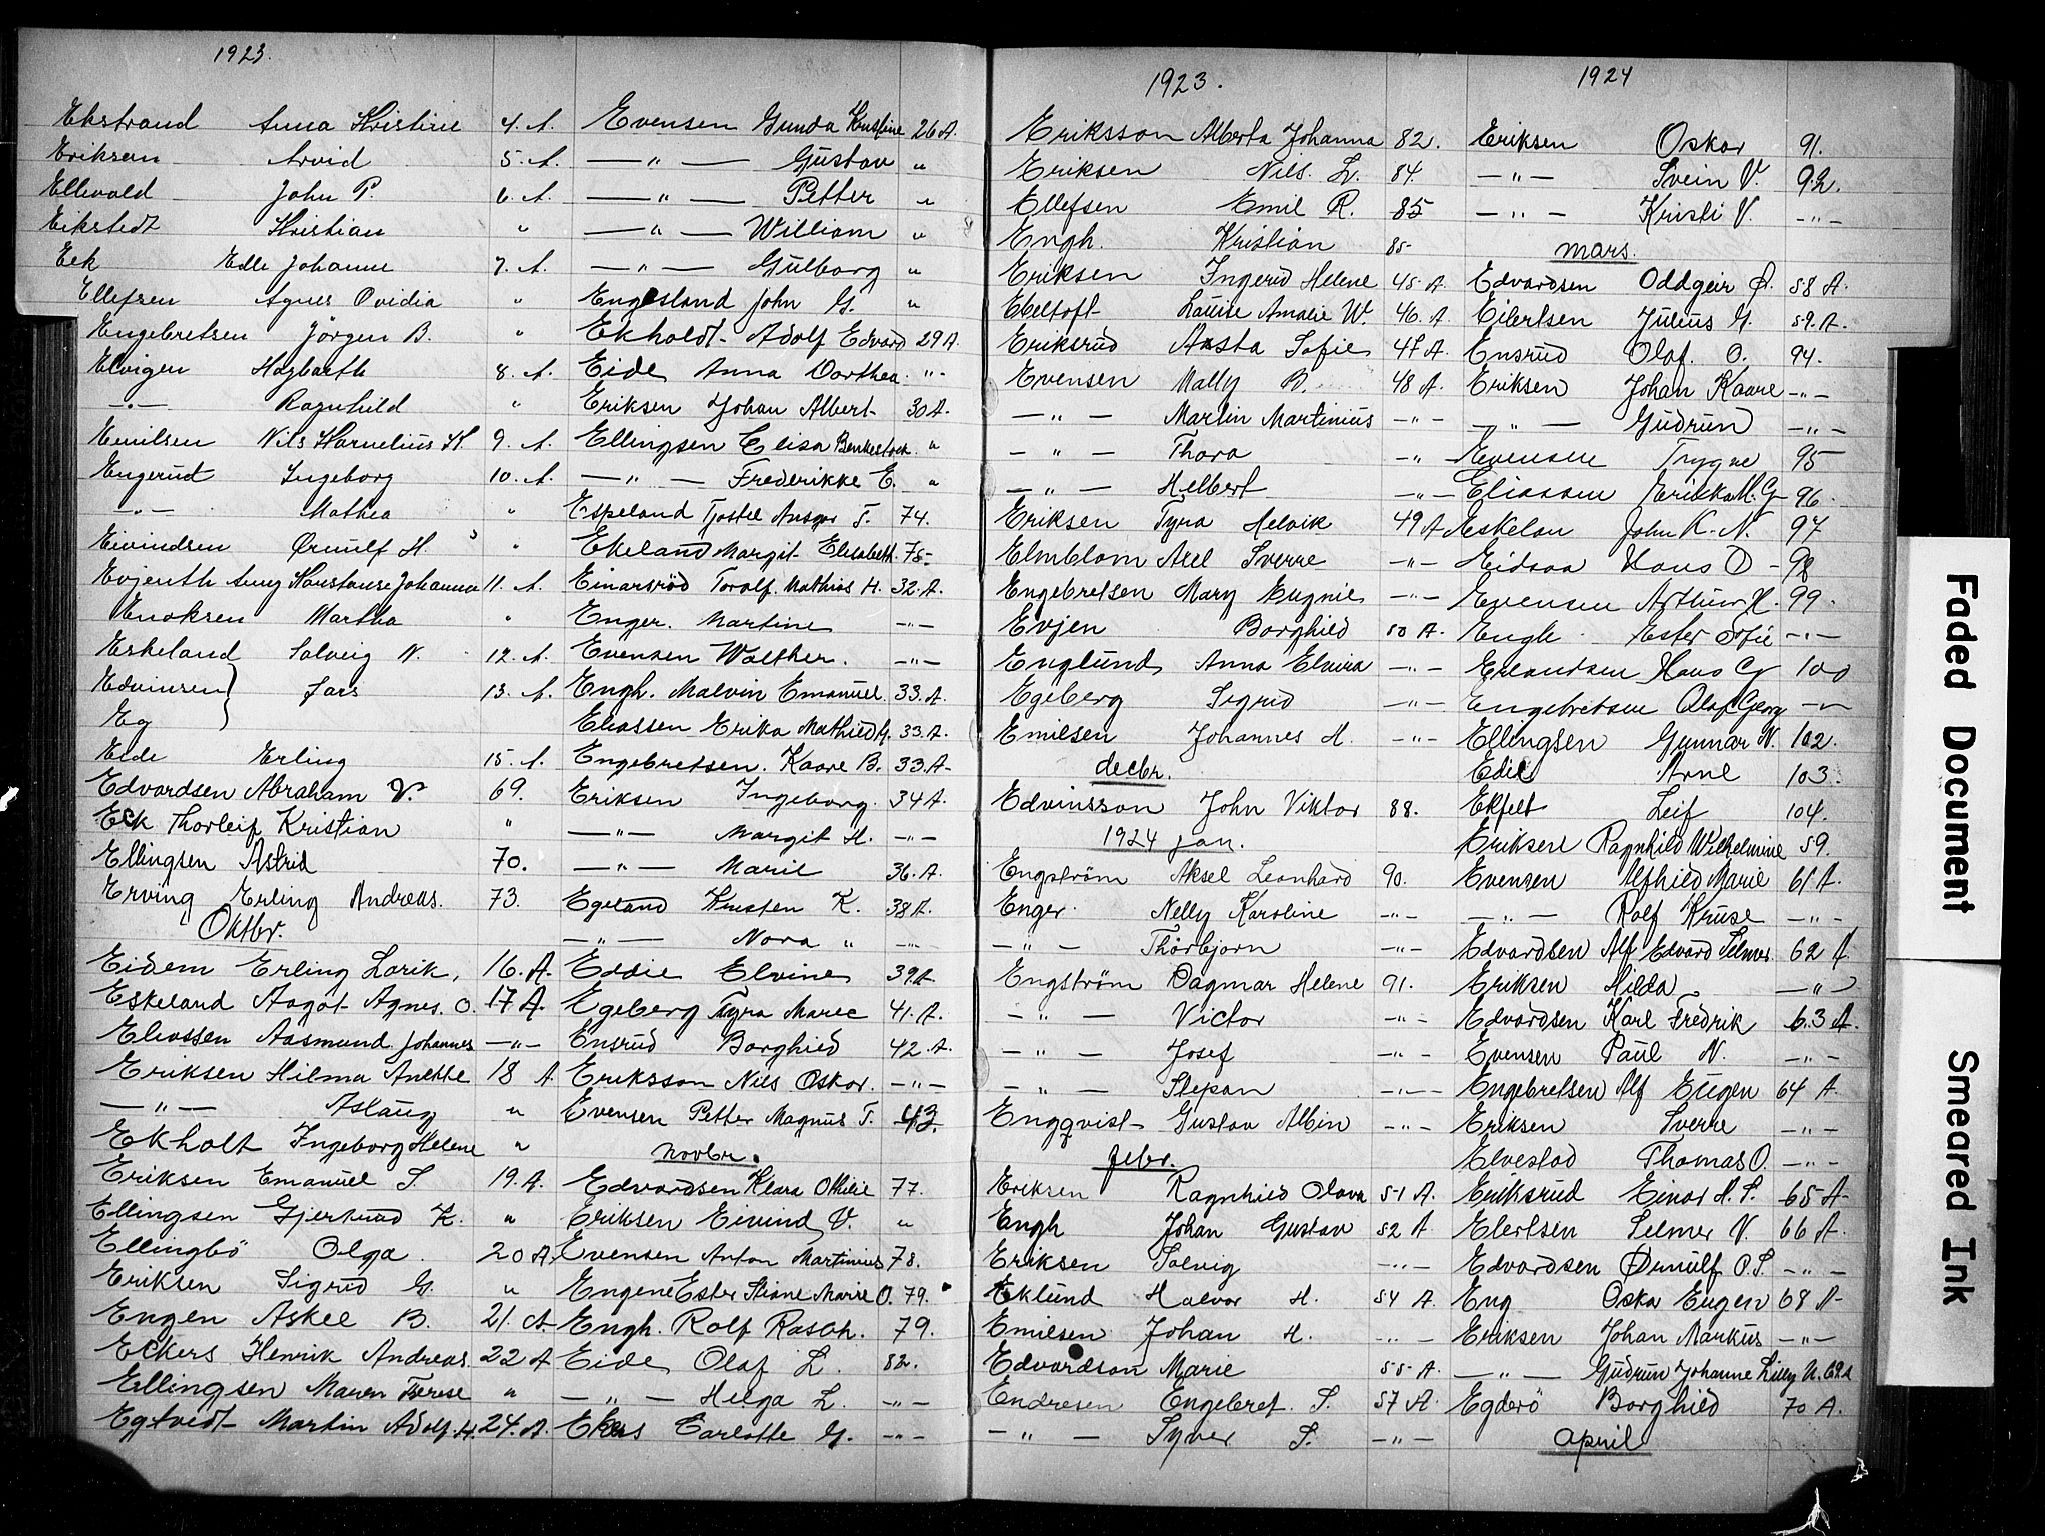 1923.
Ekstrand Anna Kristine 4. A.
Eriksen Arvid 5. A.
Ellevold John P. 6. A.
Eikstedt Kristian "
Eek Edle Johanne 7. A.
Ellefsen Agnes Ovidia "
Engebretsen Jörgen B. "
Elvigen Hagbarth 8. A.
—"— Ragnhild "
Emilsen Nils Kornelius H 9. A.
Engerud Ingeborg 10. A.
—"— Mathea "
Eivindsen Ørnulf H. "
Evjenth Amy Konstanse Johanna 11. A.
Enoksen Martha "
Eskeland Solveig N. 12. A.
Edvinsen } Jars 13. A.
Eg }
Eide Erling 15. A.
Edvardsen Abraham V. 69.
Eek Thorleif Kristian "
Ellingsen Astrid 70.
Erving Erling Andreas. 73.
Oktbr.
Eidem Erling Lorik, 16. A.
Eskeland Aagot Agnes. O. 17 A.
Eliassen Aasmund Johannes —"—
Eriksen Hilma Anette 18 A.
—"— Aslaug "
Ekholt Ingeborg Helene "
Eriksen Emanuel S. 19. A.
Ellingsen Gjertrud K. "
Ellingbö Olga 20 A.
Eriksen Sigrud G. "
Engen Askel B. 21. A.
Eckers Henrik Andreas. 22 A
Ellingsen Maren Terese "
Egtvedt Martin Adolf. H. 24. A.
Evensen Gunda Kristine 26 A.
—"— Gustav "
—"— Petter "
—"— William "
—"— Gulborg "
Engesland John G. "
Ekholdt Adolf Edvard 29 A.
Eide Anna Dorthea. -"-
Eriksen Johan Albert 30 A.
Ellingsen Elisa Benkestock "
—"— Frederikke E. "
Espeland Tjostel Ansgar T. 74.
Ekeland Margit Elisabeth. 75-
Einarsröd Torolf. Mathias H. 32. A.
Enger. Martine —"—
Evensen Walther. —"—
Engh. Malvin Emanuel. 33. A.
Eliassen Erika Mathied H. 33. A.
Engebretsen. Kaare B. 33. A.
Eriksen Ingeborg. 34 A.
—"— Margit H. —"—
—"— Marie 36. A.
Egeland Kristen K. 38 A.
—"— Nora " —"—
Eddie Elvine 39 A.
Egeberg Tyra Marie 41. A.
Ensrud Borghild 42. A.
Eriksson Nils Oskar. —"—
Evensen Petter Magnus T. 43.
Novbr.
Edvardsen Klara Othilie 77.
Eriksen Eivind V. "
Evensen Anton Martinius 78.
Engene Ester Stiane Marie O. 79.
Engh. Rolf Rasch. 79.
Eide Olaf L. 82.
—"— Helga L. —"—
Ekers Carlotte G. —"—
1923.
Eriksson Alberta Johanna 82.
Eriksen Nils. L. 84.
Ellefsen Emil R. 85
Engh. Kristian 85-
Eriksen Ingerid Helene 45. A
Ebeltoft Louise Amalie W. 46. A
Eriksrud Aasta Sofie 47 A.
Evensen Mally B. 48 A.
—"— Martin Martinius —"—
—"— Thora -"
—"— Helbert —"—
Eriksen Tyra Helvik 49 A
Elmblom Axel Sverre —"—
Engebretsen Mary Eugnie —"—
Evjen Borghild 50 A.
Englund Anna Elvira —"—
Egeberg Sigrud —"—
Emilsen Johannes H. —"—
decbr.
Edvinsson John Viktor 88.
1924 jan.
Engström Aksel Leonhard 90.
Enger. Nelly Karoline —"—
—"— Thorbjorn —"—
Engström Dagmar Helene 91.
—"— Victor —"—
—"— Josef —"—
—"— Stepan —"—
Engqvist Gustav Albin —"—
febr.
Eriksen Ragnhild Olava 51 A.
Engh Johan Gustav 52 A.
Eriksen Solvig —"—
Eklund Halvor H. 54 A.
Emilsen Johan H. —"—
Edvardson Marie 55 A.
Endresen Engebret. S. 57 A.
—"— Syver S. —"—
1924
Eriksen Oskar 91.
—"— Svein V. 92.
—"— Kristi V. —"—
mars.
Edvardsen Oddgeir Ø. 58 A.
Eilertsen Julius G. 59. A.
Ensrud Olaf. O. 94.
Eriksen Johan Kaare —"—
—"— Gudrun —"—
Evensen Trygve 95
Eliassen Erikka M. G 96
Eskelan John K. N. 97
Eidsaa Hans O 98
Evensen Arthur H. 99.
Engh. Ester Sofie —"—
Erlandsen Hans G 100
Engebretsen Olaf Georg —"—
Ellingsen Gunnar N. 102.
Edie Arne 103.
Ekfelt Leif 104.
Eriksen Ragnhild Wilhelmine 59.
Evensen Alfhild Marie 61 A.
—"— Rolf Kruse —"—
Edvardsen Alf Edvard Selmer 62 A.
Eriksen Hilda —"—
Edvardsen Karl Fredrik 63 A.
Evensen Paul N. —"—
Engebretsen Alf Eugen 64 A.
Eriksen Sverre —"—
Elvestad Thomas O. —"—
Eriksrud Einar H. S. 65 A
Elertsen Selmer V. 66 A.
Edvardsen Ørnulf O. S. —"—
Eng Oska Eugen 68 A
Eriksen Johan Markus —"—
—"— Gudrun Johanne Lilly N. 69 A
Egderö Borghild 70 A.
April
Faded Document
Smeared Ink